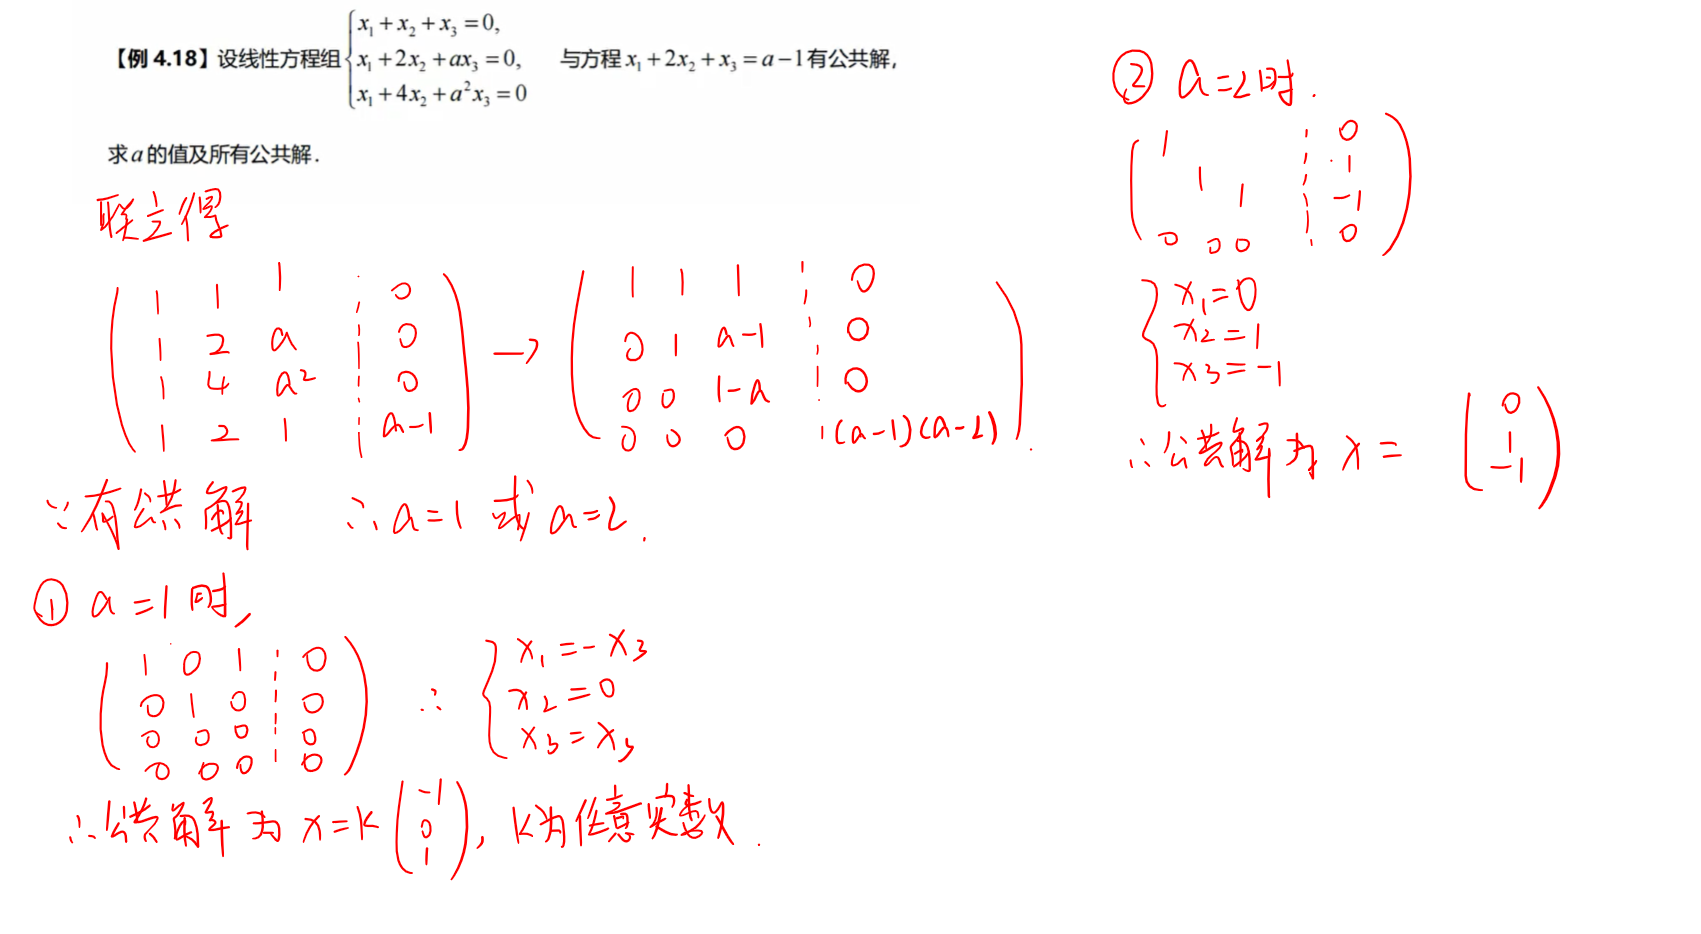 【例 4.18】设线性方程组 { x₁ + x₂ + x₃ = 0, x₁ + 2x₂ + ax₃ = 0, x₁ + 4x₂ + a²x₃ = 0 与方程 x₁ + 2x₂ + x₃ = a − 1 有公共解,
求 a 的值及所有公共解.
联立得
( 1 1 1 ¦ 0
1 2 a ¦ 0
1 4 a² ¦ 0
1 2 1 ¦ a-1 )
→
( 1 1 1 ¦ 0
0 1 a-1 ¦ 0
0 0 1-a ¦ 0
0 0 0 ¦ (a-1)(a-2) ) .
∵有公共解 ∴a=1 或 a=2 .
① a=1时,
( 1 0 1 ¦ 0
0 1 0 ¦ 0
0 0 0 ¦ 0
0 0 0 ¦ 0 )
∴ { x₁ = -x₃
x₂ = 0
x₃ = x₃
∴公共解为 x=k ( -1 0 1 ), k为任意实数 .
② a=2时 .
( 1 ¦ 0
1 ¦ 1
1 ¦ -1
0 0 0 ¦ 0 )
{ x₁=0
x₂=1
x₃=-1
∴公共解为 x= ( 0 1 -1 )